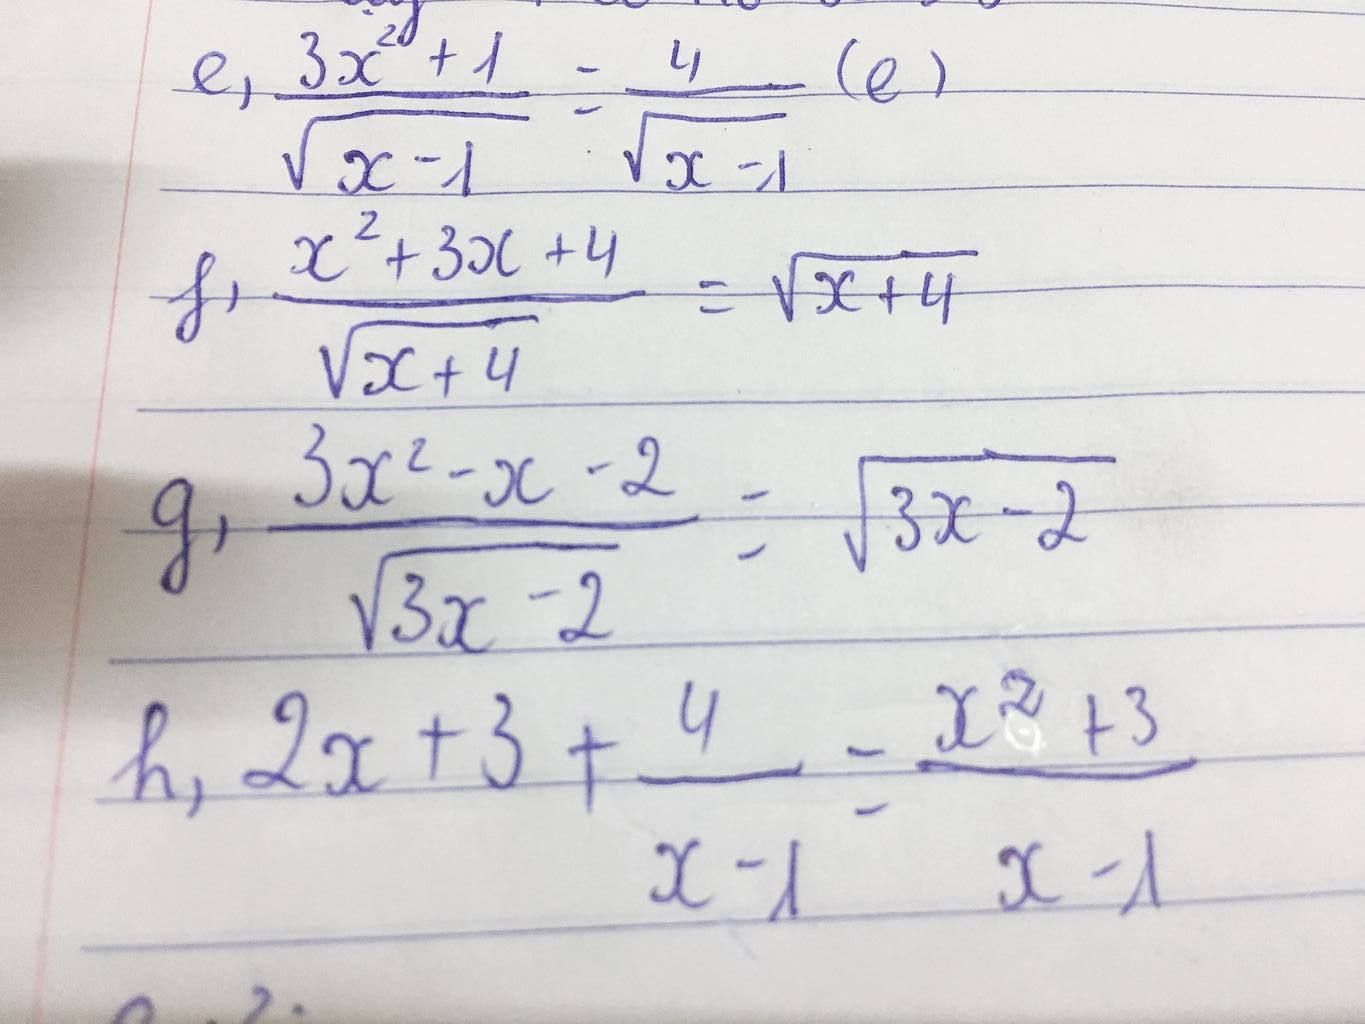 e, (3x² + 1)/√(x - 1) = 4/√(x - 1) (e)
f, (x² + 3x + 4)/√(x + 4) = √(x + 4)
g, (3x² - x - 2)/√(3x - 2) = √(3x - 2)
h, 2x + 3 + 4/(x - 1) = (x² + 3)/(x - 1)